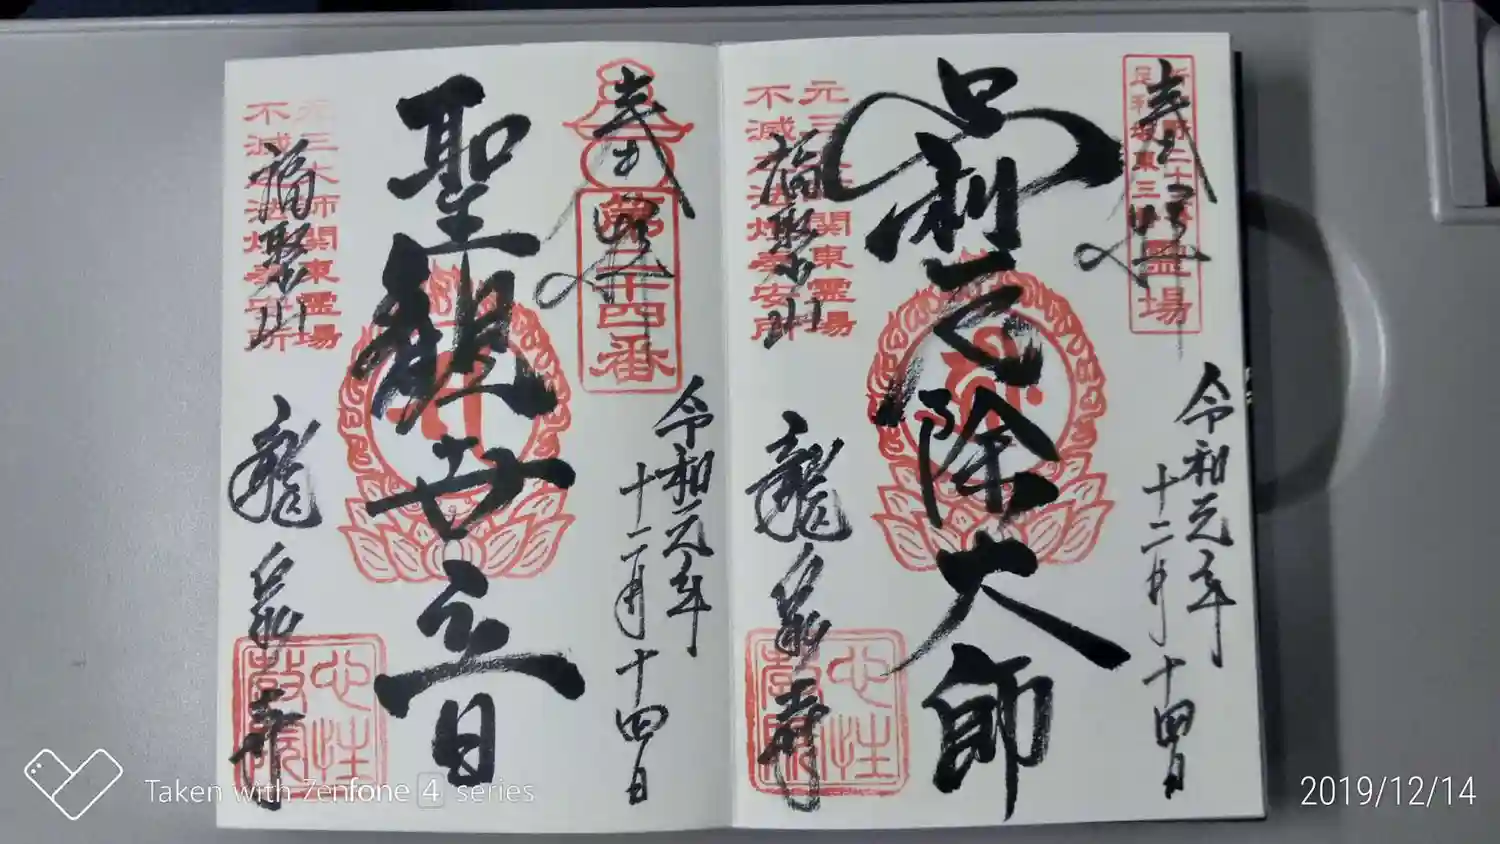 奉拝
令和元年
十二月十四日
足利厄除大師
元三大師関東霊場
不滅之法燈奉安所
福聚山
龍泉寺
奉拝
第二十四番
令和元年
十二月十四日
聖観世音
元三大師関東霊場
不滅之法燈奉安所
福聚山
龍泉寺
Taken with Zenfone 4 series
2019/12/14